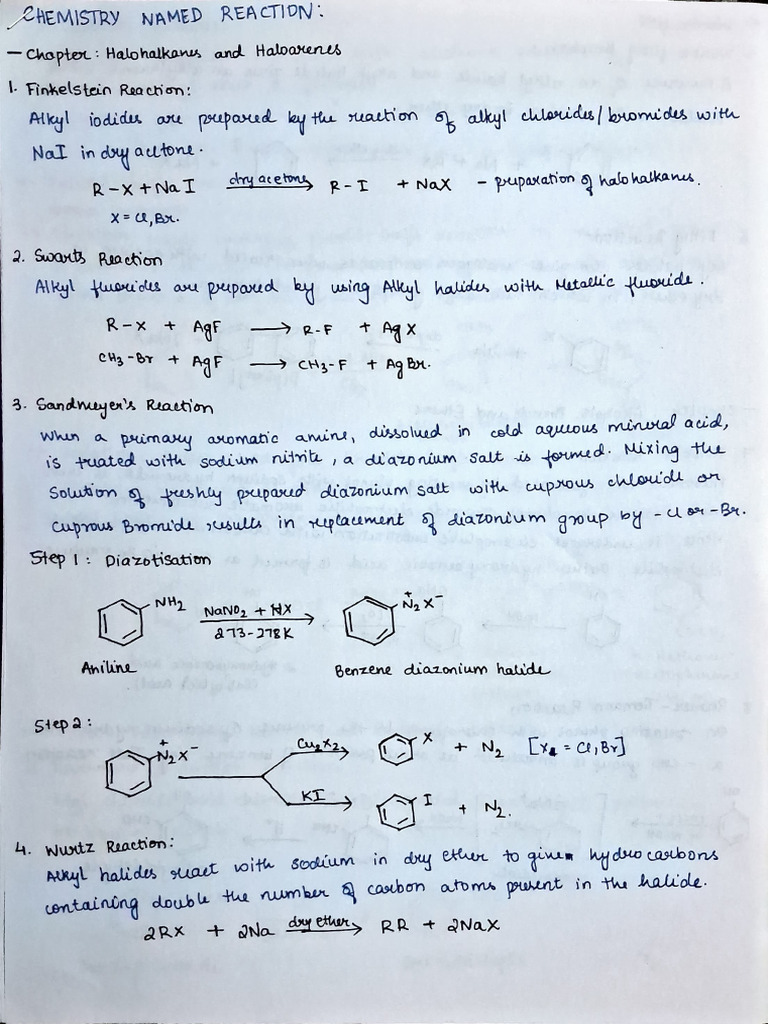 CHEMISTRY NAMED REACTION:
– Chapter: Halohalkanes and Haloarenes
1. Finkelstein Reaction:
Alkyl iodides are prepared by the reaction of alkyl chlorides/bromides with
NaI in dry acetone.
R-X + NaI dry acetone → R-I + NaX – preparation of halohalkanes.
X = Cl, Br.
2. Swarts Reaction
Alkyl fluorides are prepared by using Alkyl halides with Metallic fluoride.
R-X + AgF → R-F + AgX
CH3-Br + AgF → CH3-F + AgBr.
3. Sandmeyer's Reaction
When a primary aromatic amine, dissolved in cold aqueous mineral acid,
is treated with sodium nitrite, a diazonium salt is formed. Mixing the
solution of freshly prepared diazonium salt with cuprous chloride or
Cuprous Bromide results in replacement of diazonium group by -Cl or -Br.
Step 1: Diazotisation
NH2 NaNO2 + HX → N2+X-
273-278K
Aniline Benzene diazonium halide
Step 2:
N2+X- Cu2X2 → X + N2 [X = Cl, Br]
KI → I + N2.
4. Wurtz Reaction:
Alkyl halides react with sodium in dry ether to given hydrocarbons
containing double the number of carbon atoms present in the halide.
2RX + 2Na dry ether → RR + 2NaX